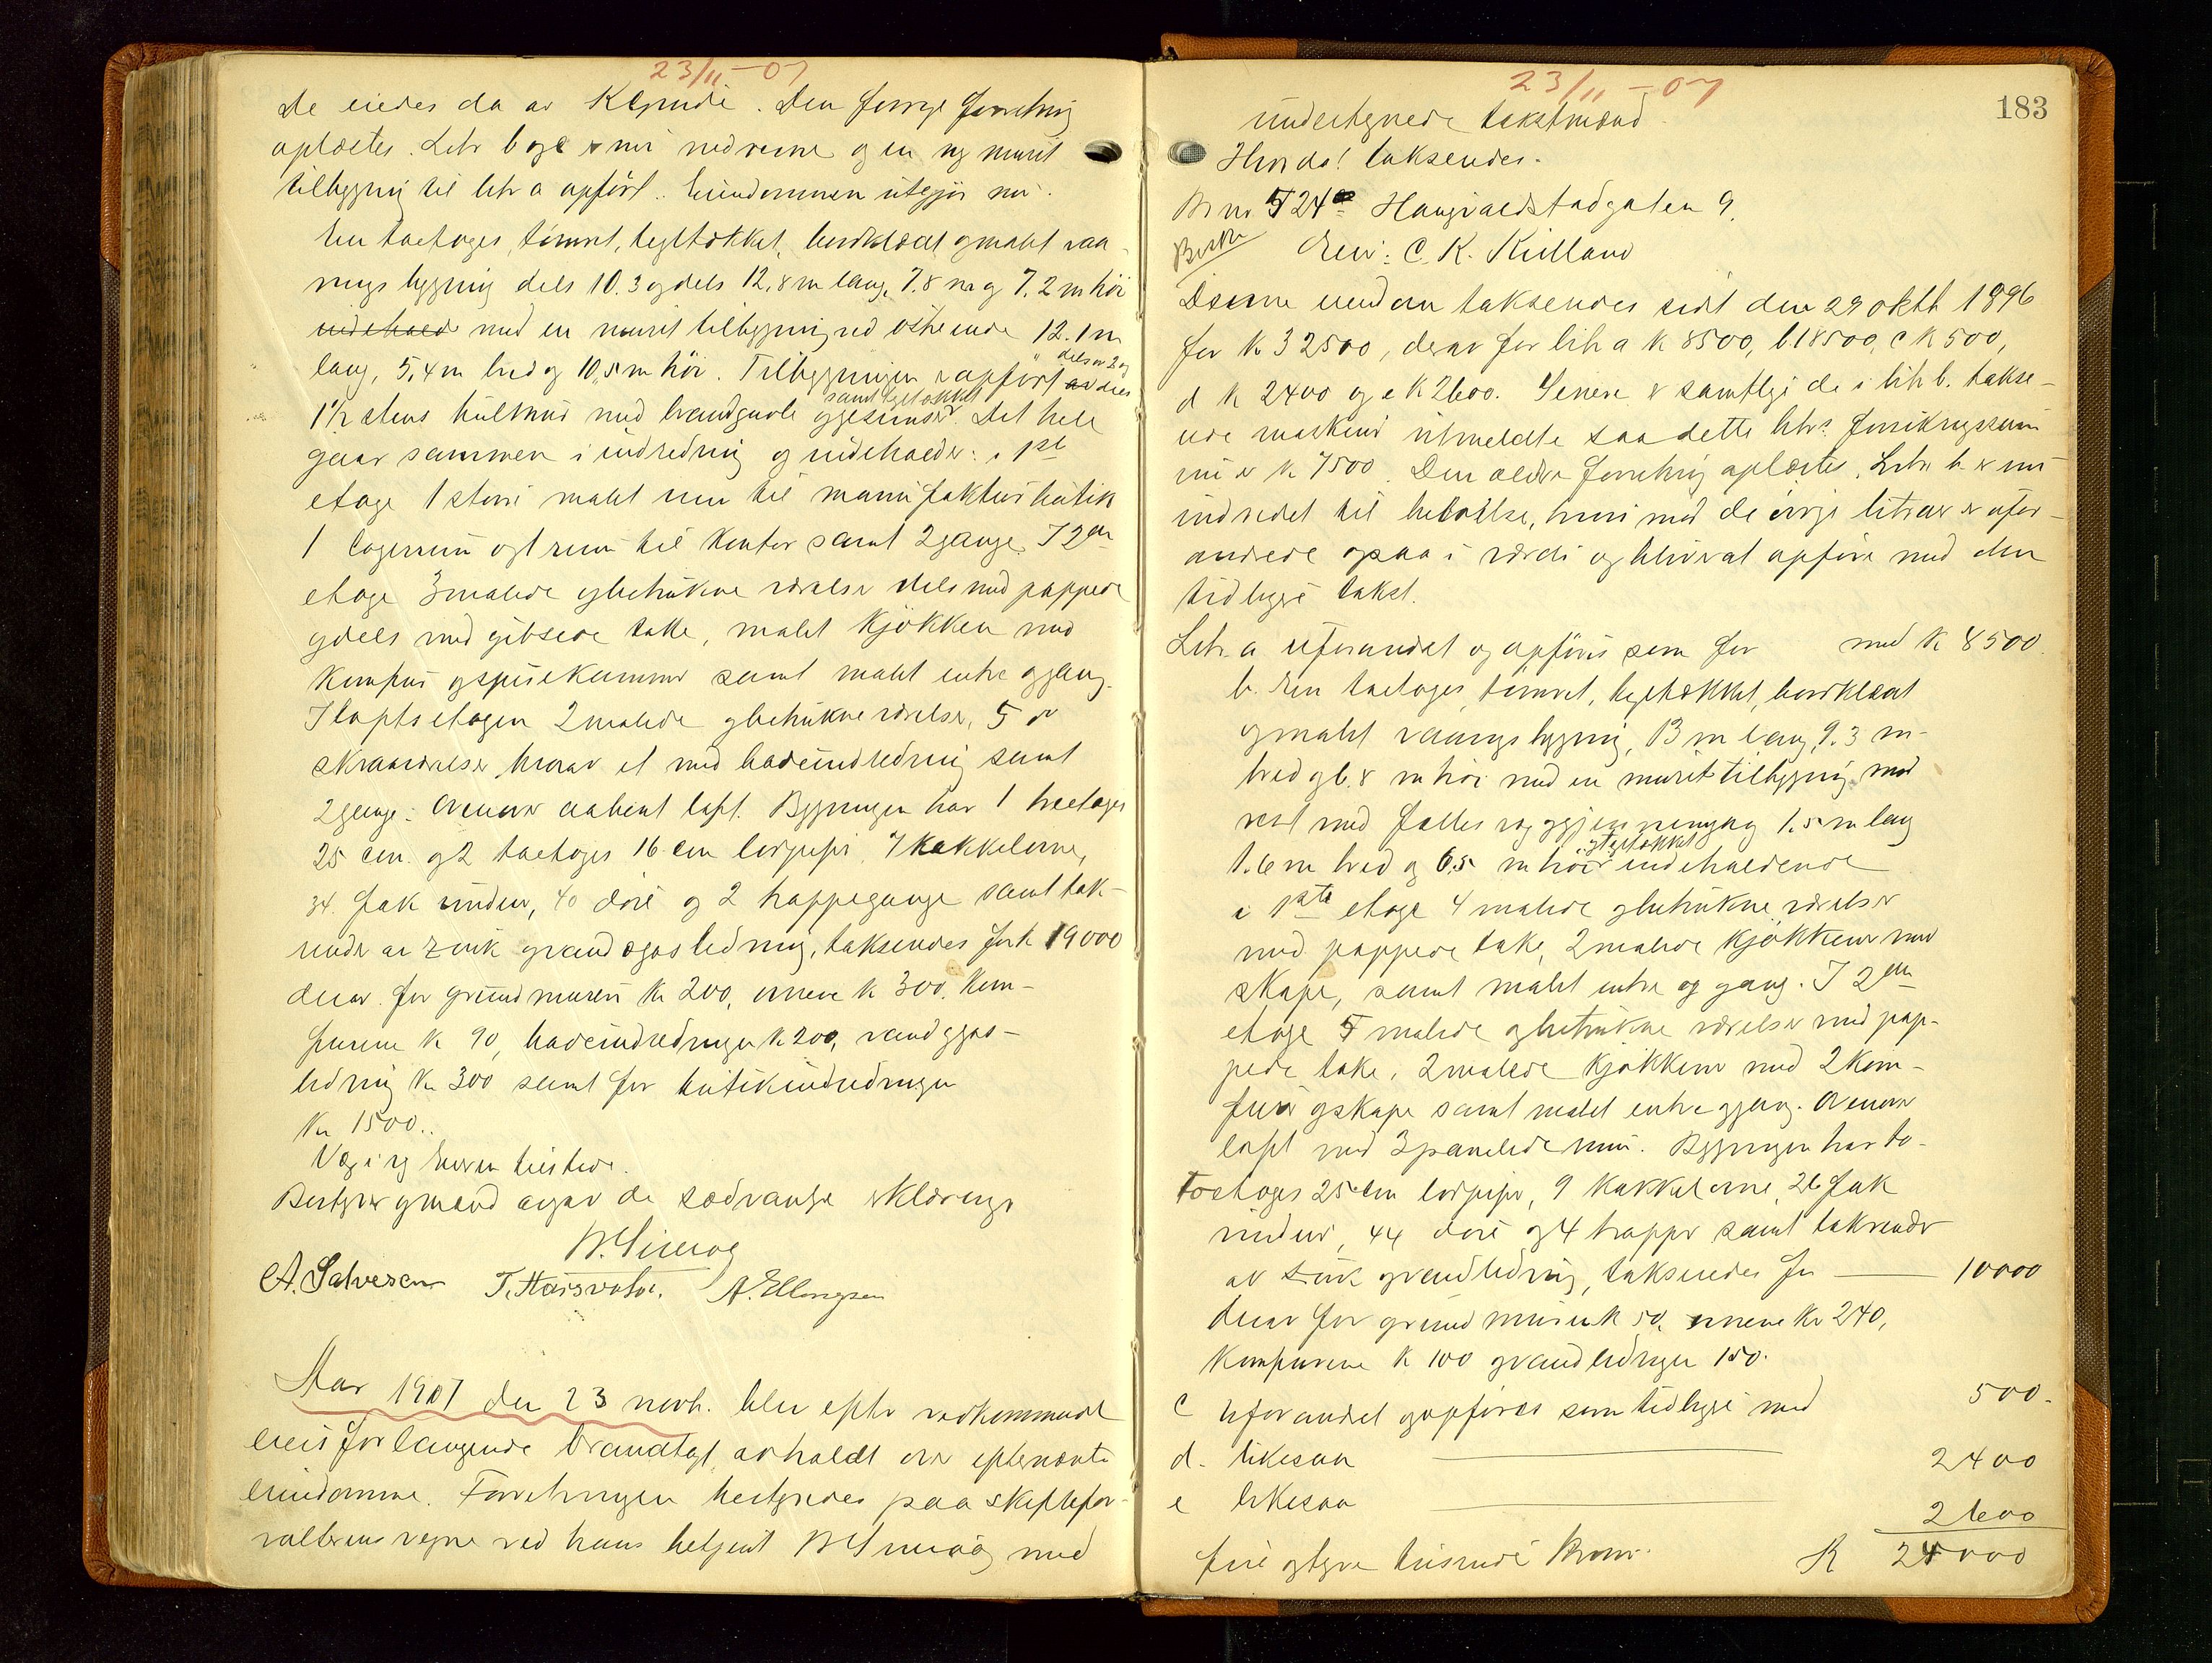 23/11-07
De eiedes da av Den forrige forretning
oplæstes. Litr b og c er nu nedrevne og en ny muret
tilbygning til litr a opført. Eiendommen utgjør nu:
En toetages, tømret, tegltækket, bordklædt og malet vaa-
nings bygning dels 10.3 og dels 12,8 m lang, 7.8 m og 7,2 m høi
indehold med en muret tilbygning ved østre ende 12.1 m
lang, 5,4 m bred og 10,5 m høi. Tilbygningen er opført av dels
dels av 2 og
1½ stens hulmur med brandgavle og gesimser. Det hele
samt tegltækket
gaar sammen i indredning og indeholder: i 1ste
etage 1 større malet rum til manufakturbutik
1 lagerrum og 1 rum til kontor samt 2 gange. I 2den
etage 3 malede og betrukne værelser dels med pappede
og dels med gibsede take, malet kjøkken med
komfur og spisekammer samt malet entre og gang.
I loftsetagen 2 malede og betrukne værelser, 5
skraaværelser, hvorav et med badeindredning samt
2 gange. Ovenover aabent loft. Bygningen har 1 treetages
25 cm. og 2 toetages 16 cm lodpiper, 7 kakkelovne,
34 fak vinduer, 40 døre og 2 trappegange samt tak-
render av zink og vand og gasledning, taksendes for k 19000
derav for grundmuren kr 200, ovnene k 300, kom-
furene k 90, badeindredningen k 200, vand og gas-
ledning kr 300 samt for butikindredningen
Kr 1500..
Væg i og Eieren tilstede.
Bestyrer og mænd avgav de sædvanlige erklæringer
A. Salvesen T. A. Ellingsen

Aar 1907 den 23 novb. blev efter vedkommende
eiers forlangende brandtaxt avholdt over efternævnte
eiendomme. Forretningen bestyredes paa skiftefor-
valterens vegne ved hans betjent med
183
23/11-07
undertegnede takstmænd.
Hvorda! taksendes.
Br nr 524a Haugvaldstadgaten 9.
Eier: C. K. Kielland
Denne eiendom taksendes sidst den 29 oktb 1896
for kr 32500, derav for litr a k 8500, b 18500, c k 500,
d k 2400 og e k 2600. Senere er samtlige de i litr b. takse-
rede maskiner utmeldte saa dette litrs forsikringssum
nu er kr 7500. Den ældre forretning oplæstes. Litr b er nu
indredet til beboelse, mens de øvrige litraer er ufor-
andrede ogsaa i værdi og blir at opføre med den
tidligere takst.
Litr. a uforandret og opføres som før med k 8500.
b. En toetages, tømret, tegltækket, bordklædt
og malet vaaningsbygning, 13 m lang, 9.3 m
bred og 6.8 m høi med en muret tilbygning mod
vest med fælles væg og 1.5 m lang
1.6 m bred og 6.5 m høi indeholdende
og tegltækket
i 1ste etage 4 malede og betrukne værelser
med pappede take, 2 malede kjøkkener med
skape, samt malet entre og gang. I 2den
etage 5 malede og betrukne værelser med pap-
pede take, 2 malede kjøkkener med 2 kom-
furer og skape samt malet entre og gang. Ovenover
loft med 3 panelede rum. Bygningen har to
toetages 25 cm lodpiper, 9 kakkelovne, 26 fak
vinduer, 44 døre og 4 trapper samt takrender
av zink og vandledning, taksendes for 10000
derav for grundmuren k 50, ovnene kr 240,
komfurene k 100 og vandledningen 150.
c uforandret og opføres som tidligere med 500.
d. likesaa 2400
e likesaa 2600
fire og tyve tusende kroner. K 24000